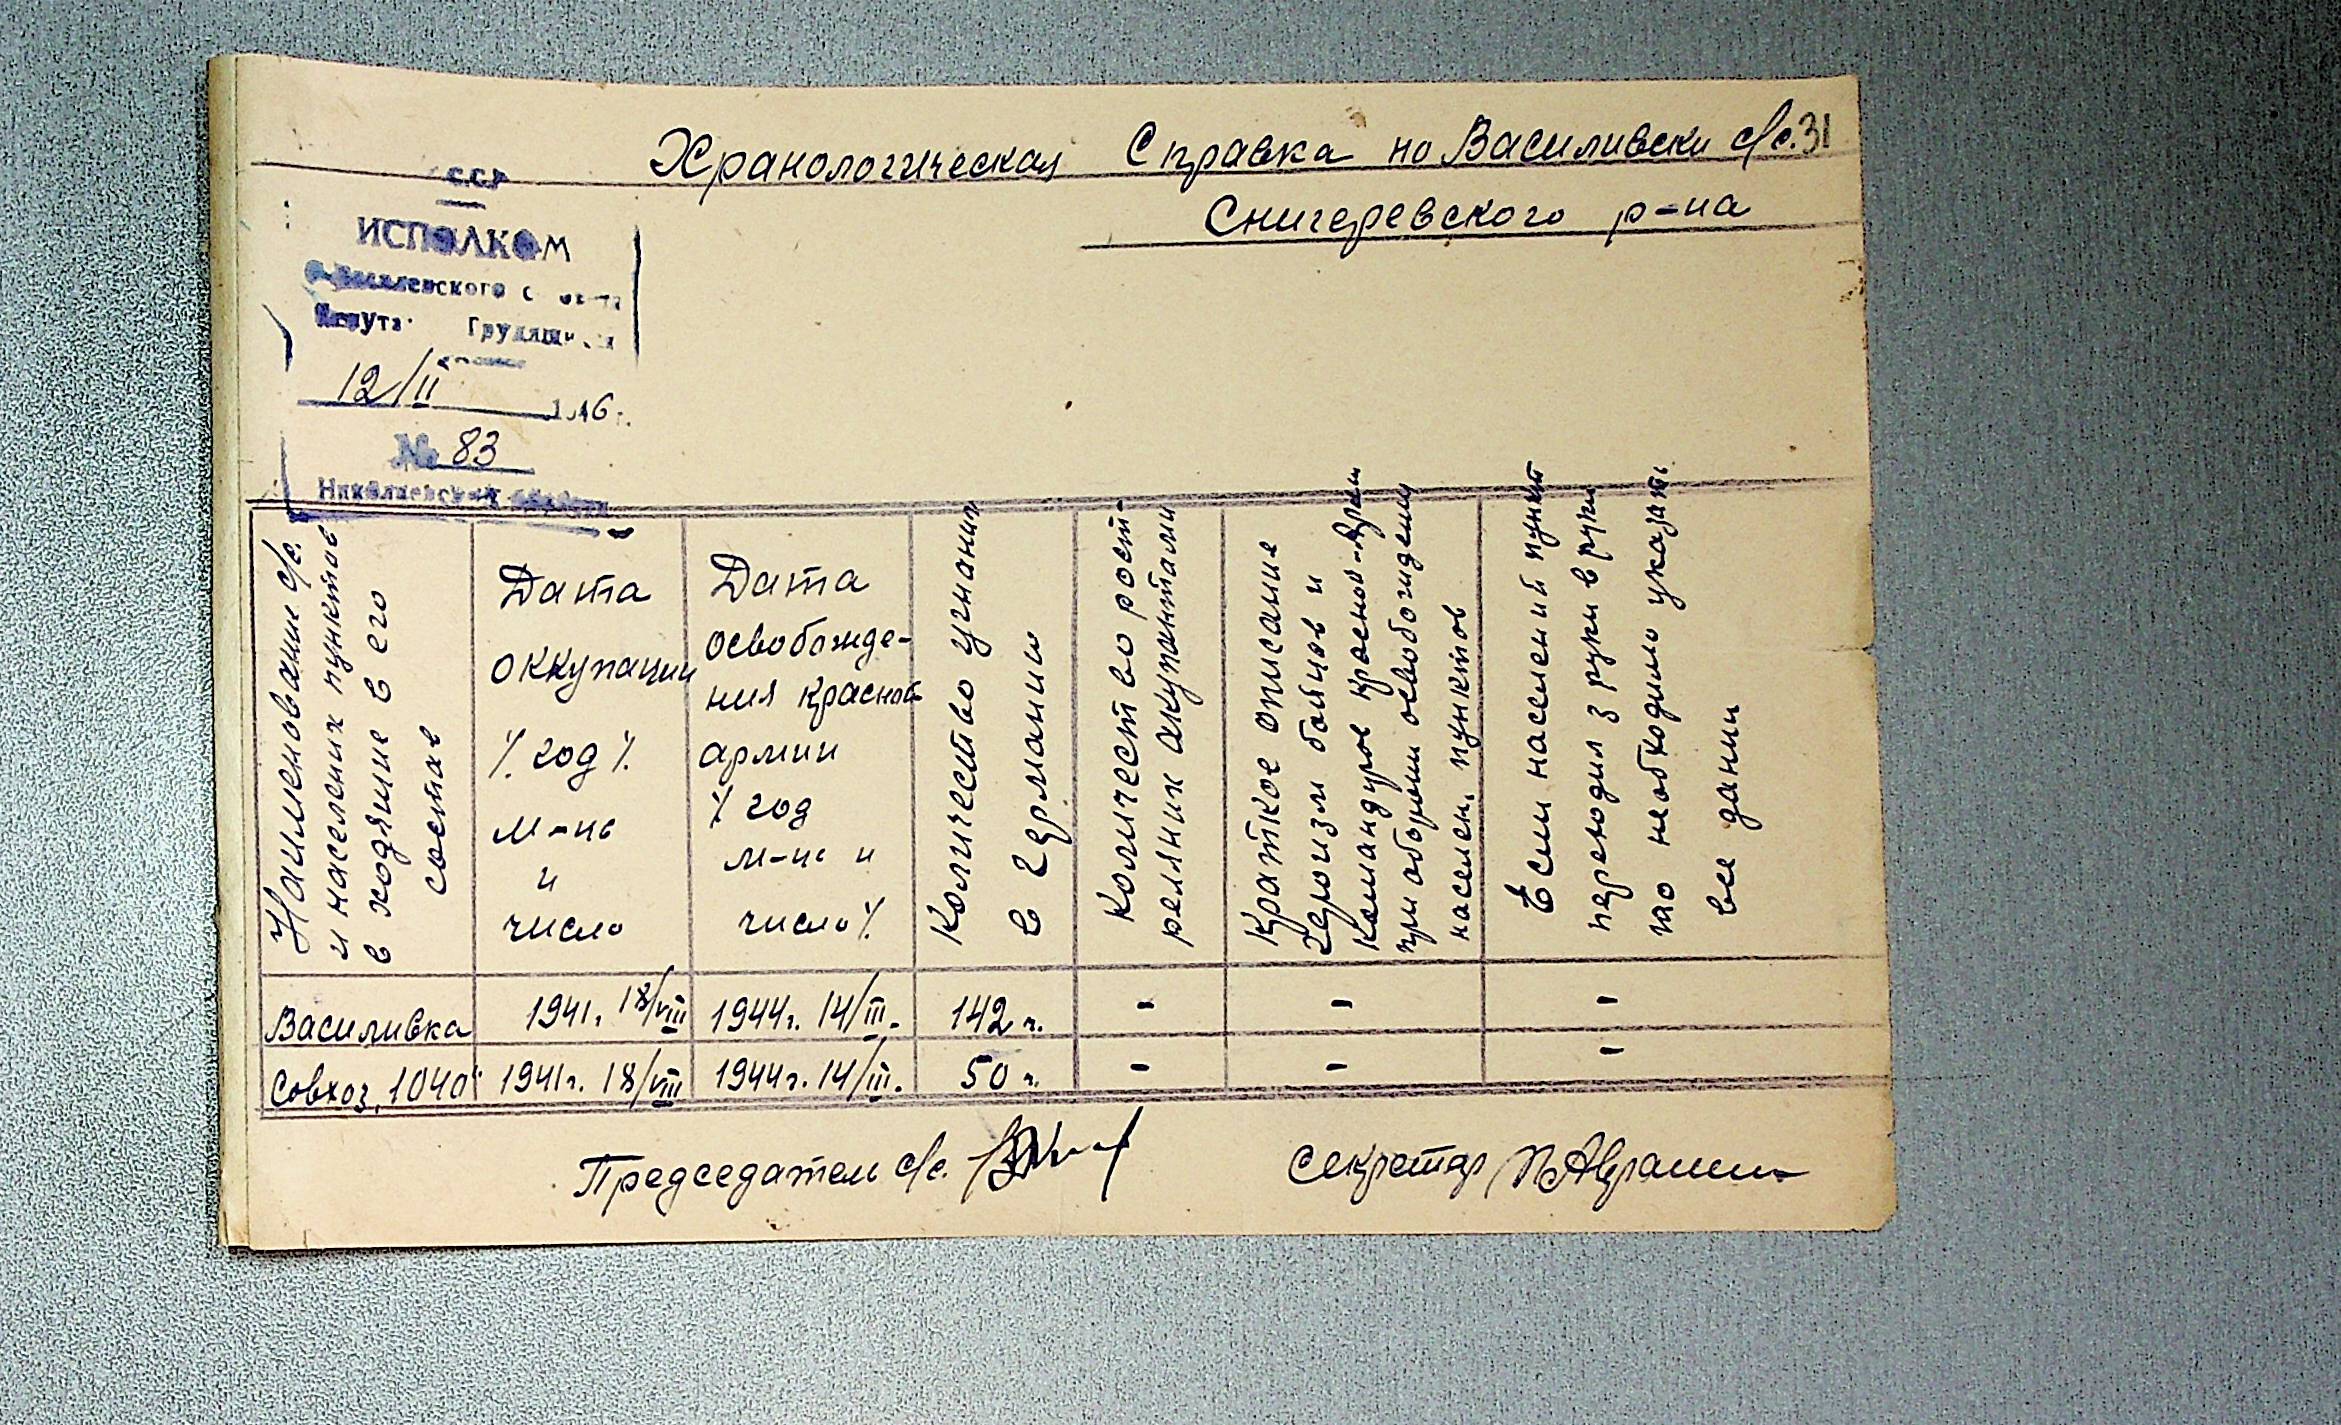 Хранологическая Справка по Василивски с/с. 31
Снигеревского р-на
ССР
ИСПОЛКОМ
Василевского
Депута Трудящихся
12/II 1946г.
№ 83
Николаевской области
Наименовании с/с.
и населених пунктов
в ходящие в его
состав
Дата
оккупации
% год %
м-нс
и
число
Дата
освобожде-
ния красной
армии
% год
м-нс и
число %
Количество угнаних
в германию
Количество рост-
релляних окупантами
Краткое описание
героизм бойцов и
командуров красной-Арми
при оборони освобождении
населен. пунктов
Если населений пункт
переходил з руки в руки
то необходимо указать
все данни
Василивка 1941г. 18/VIII 1944г. 14/III. 142 ч. - - -
Совхоз „1040" 1941г. 18/VIII 1944г. 14/III. 50 ч. - - -
Председатель с/с. Секретар